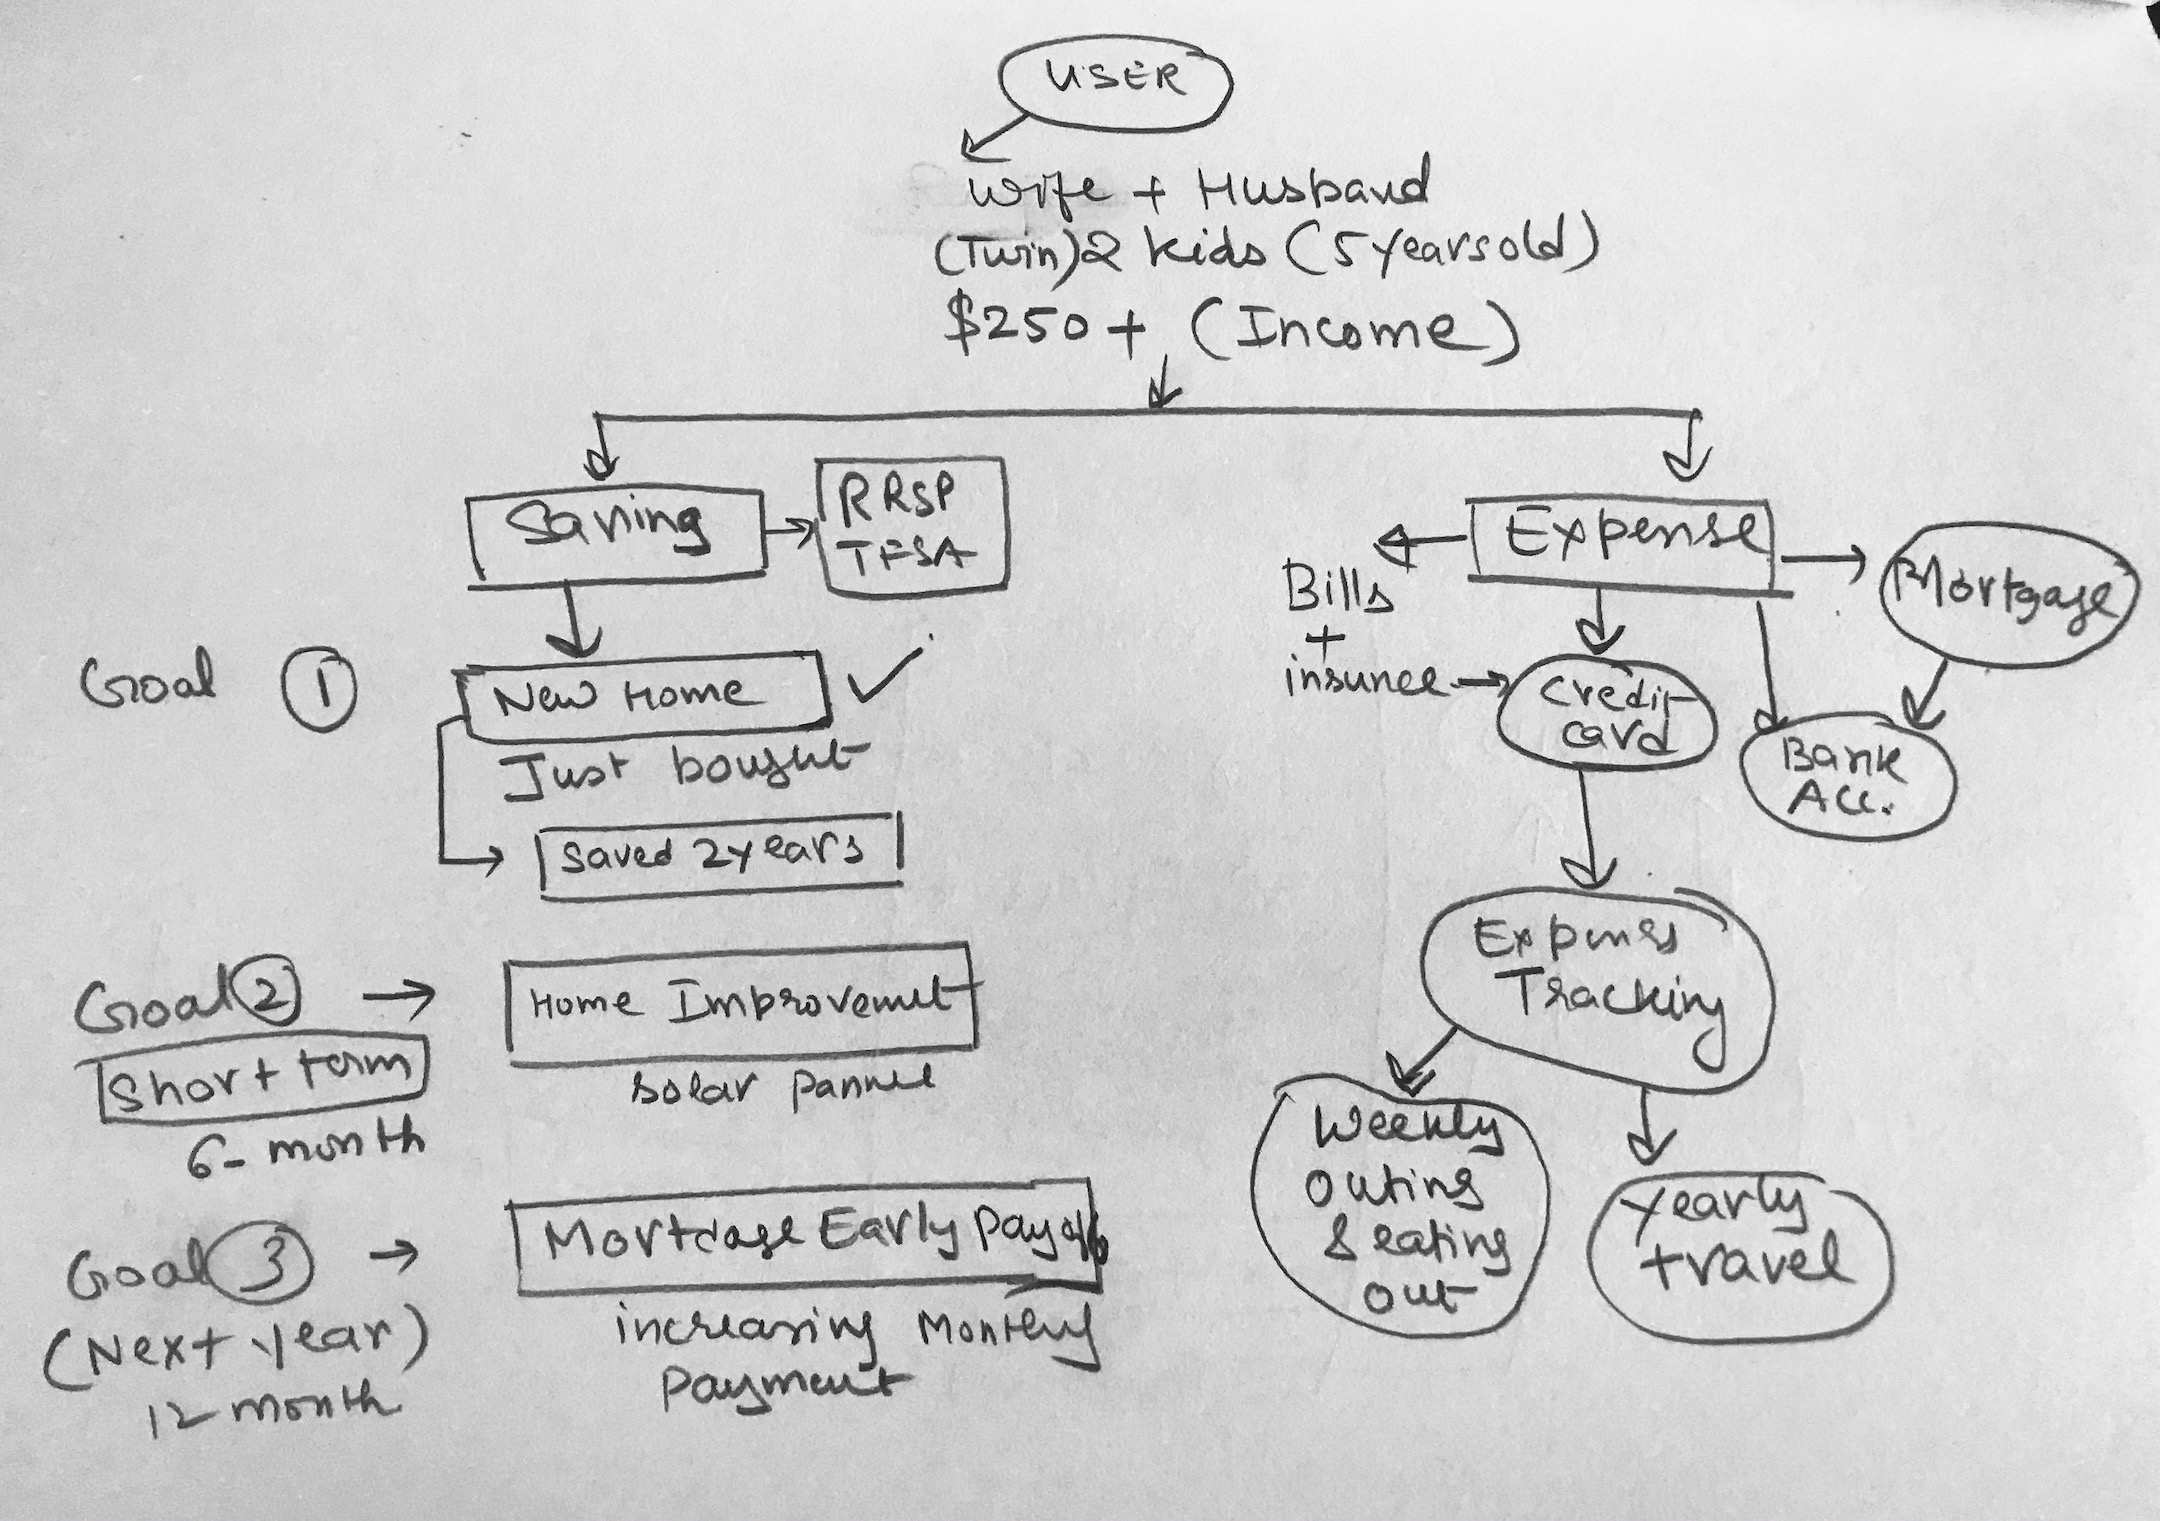 USER
Wife + Husband
(Twin) 2 kids (5 years old)
$250+ (Income)
Saving
RRSP
TFSA
Expense
Mortgage
Bills
+
insunce
Credit
card
Bank
Acc.
Goal 1
New Home ✓
Just bought
Saved 2 years
Expenss
Tracking
Goal 2
Short term
6-month
Home Improvemet
solar pannel
Weekly
outing
& eating
out
yearly
travel
Goal 3
(Next year)
12 month
Mortgage Early Payoff
increasing Monthly
Payment